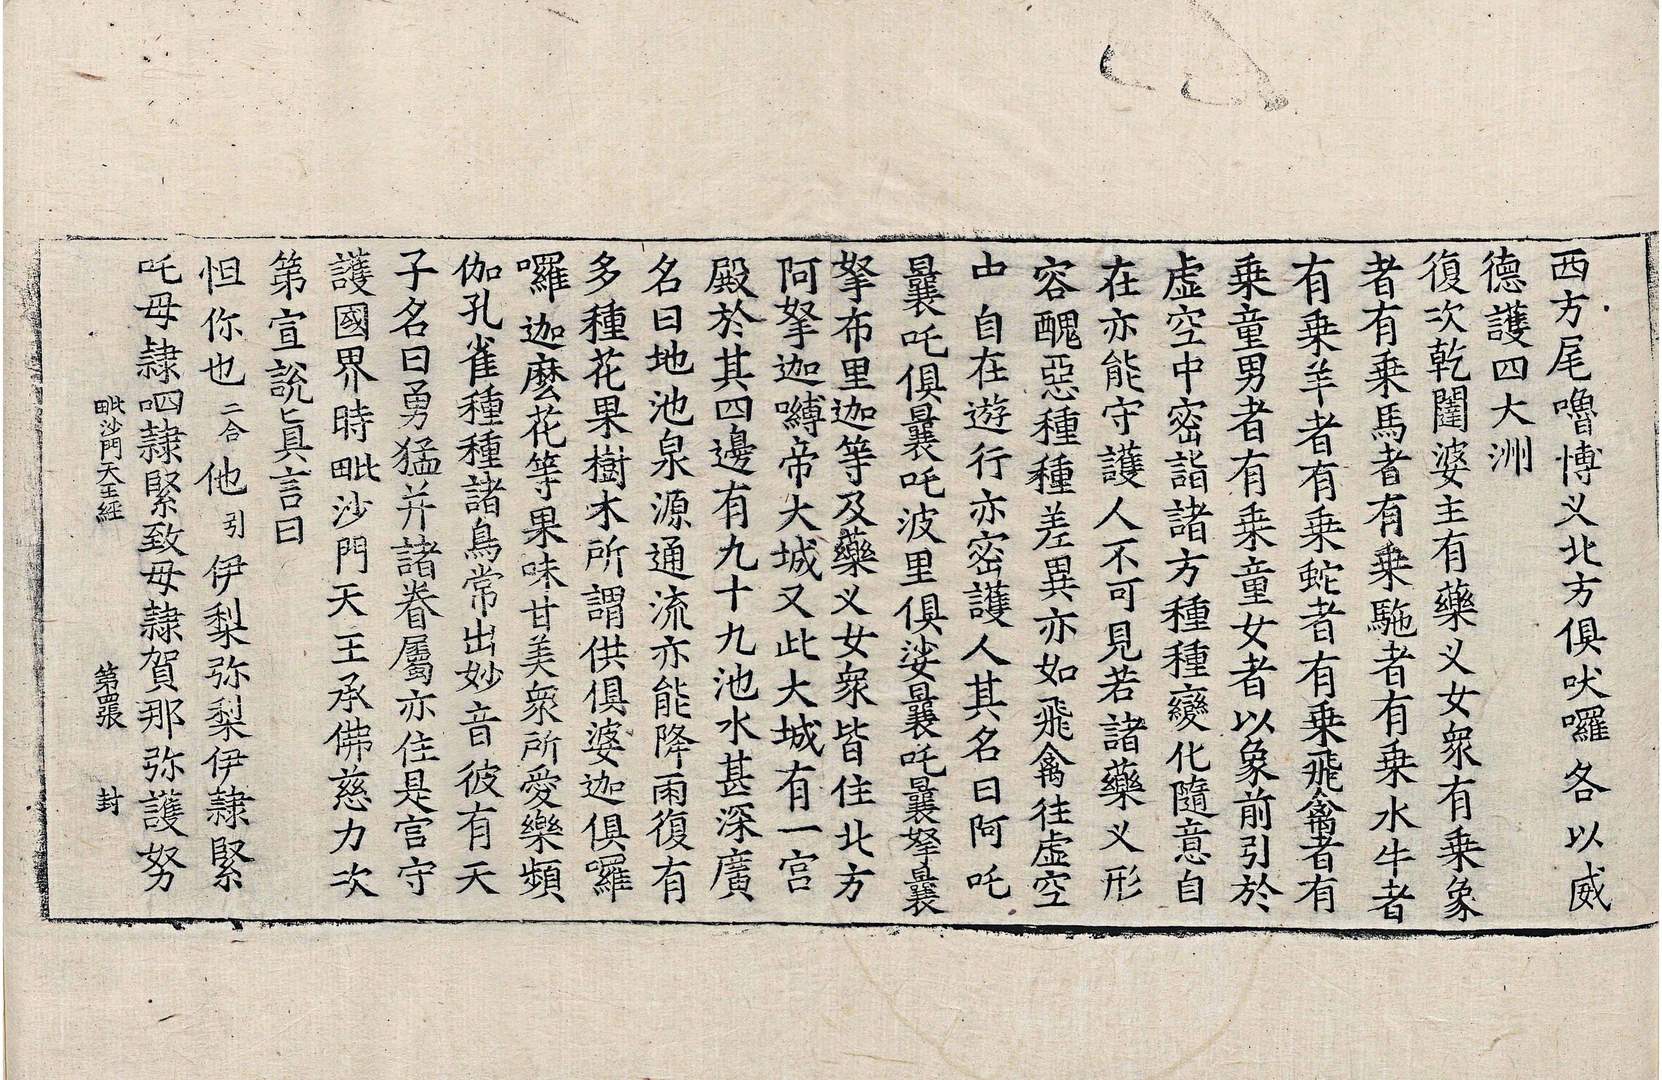 西方尾嚕博义北方俱吠囉各以威
德護四大洲
復次乾闥婆主有藥义女衆有乗象
者有乗馬者有乗駞者有乗水牛者
有乗羊者有乗蛇者有乗飛禽者有
乗童男者有乗童女者以象前引於
虚空中密詣諸方種種變化隨意自
在亦能守護人不可見若諸藥义形
容醜惡種種差異亦如飛禽往虚空
中自在遊行亦密護人其名曰阿吒
曩吒俱曩吒波里俱娑曩吒曩拏曩
拏布里迦等及藥义女衆皆住北方
阿拏迦嚩帝大城又此大城有一宫
殿於其四邊有九十九池水甚深廣
名曰地池泉源通流亦能降雨復有
多種花果樹木所謂供俱婆迦俱囉
囉迦麼花等果味甘美衆所愛樂頻
伽孔雀種種諸鳥常出妙音彼有天
子名曰勇猛并諸眷屬亦住是宫守
護國界時毗沙門天王承佛慈力次
第宣說真言曰
怛你也二合他引伊梨弥梨伊隸緊
吒毋隸呬隸緊致毋隸賀那弥護努
毗沙門天王經 第四張 封